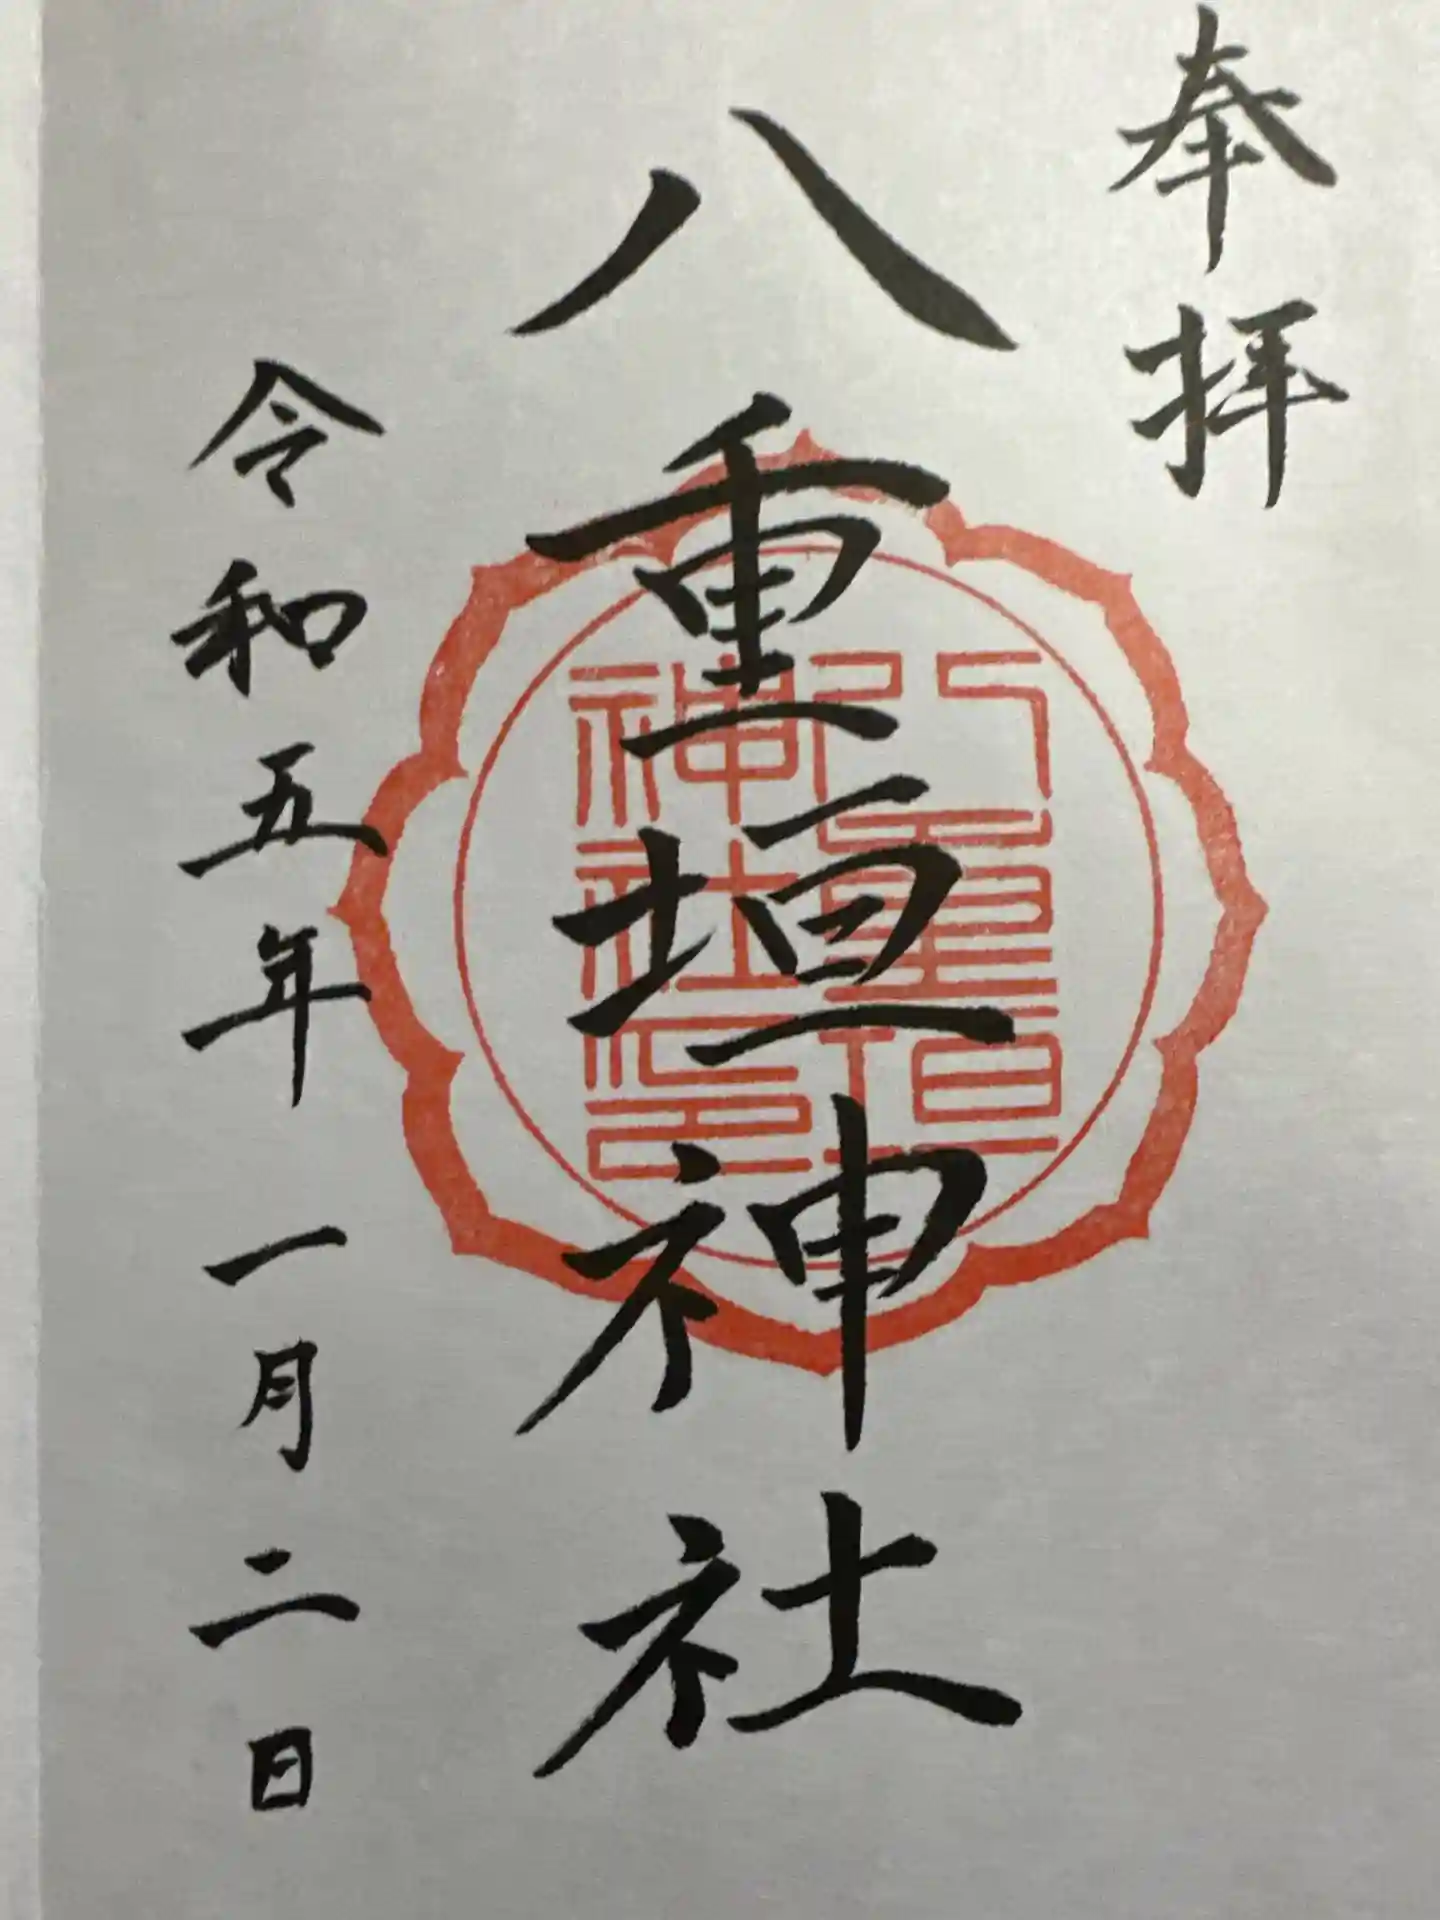 奉拝
八重垣神社
八重垣
神社印
令和五年一月二日